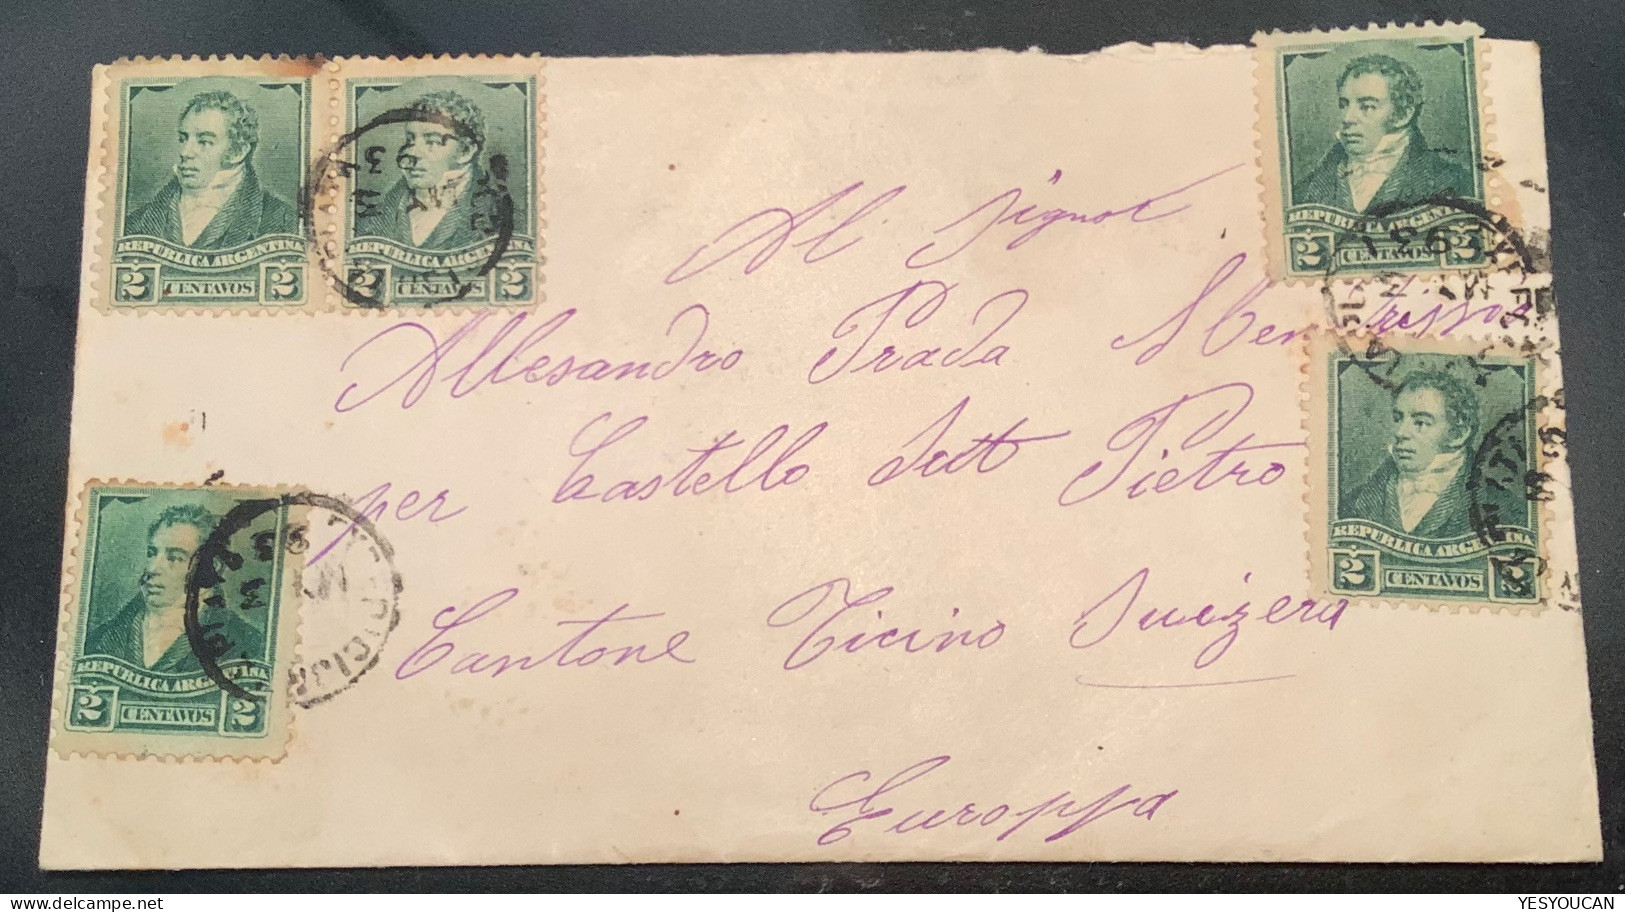 REPUBLICA ARGENTINA
2 CENTAVOS 2
REPUBLICA ARGENTINA
2 CENTAVOS 2
REPUBLICA ARGENTINA
2 CENTAVOS 2
Al Signor
Allesandro Prada
per Castello Sutt Pietro
Cantone Ticino Suizera
Europpa
REPUBLICA ARGENTINA
2 CENTAVOS 2
REPUBLICA ARGENTINA
2 CENTAVOS 2
YESYOUCAN